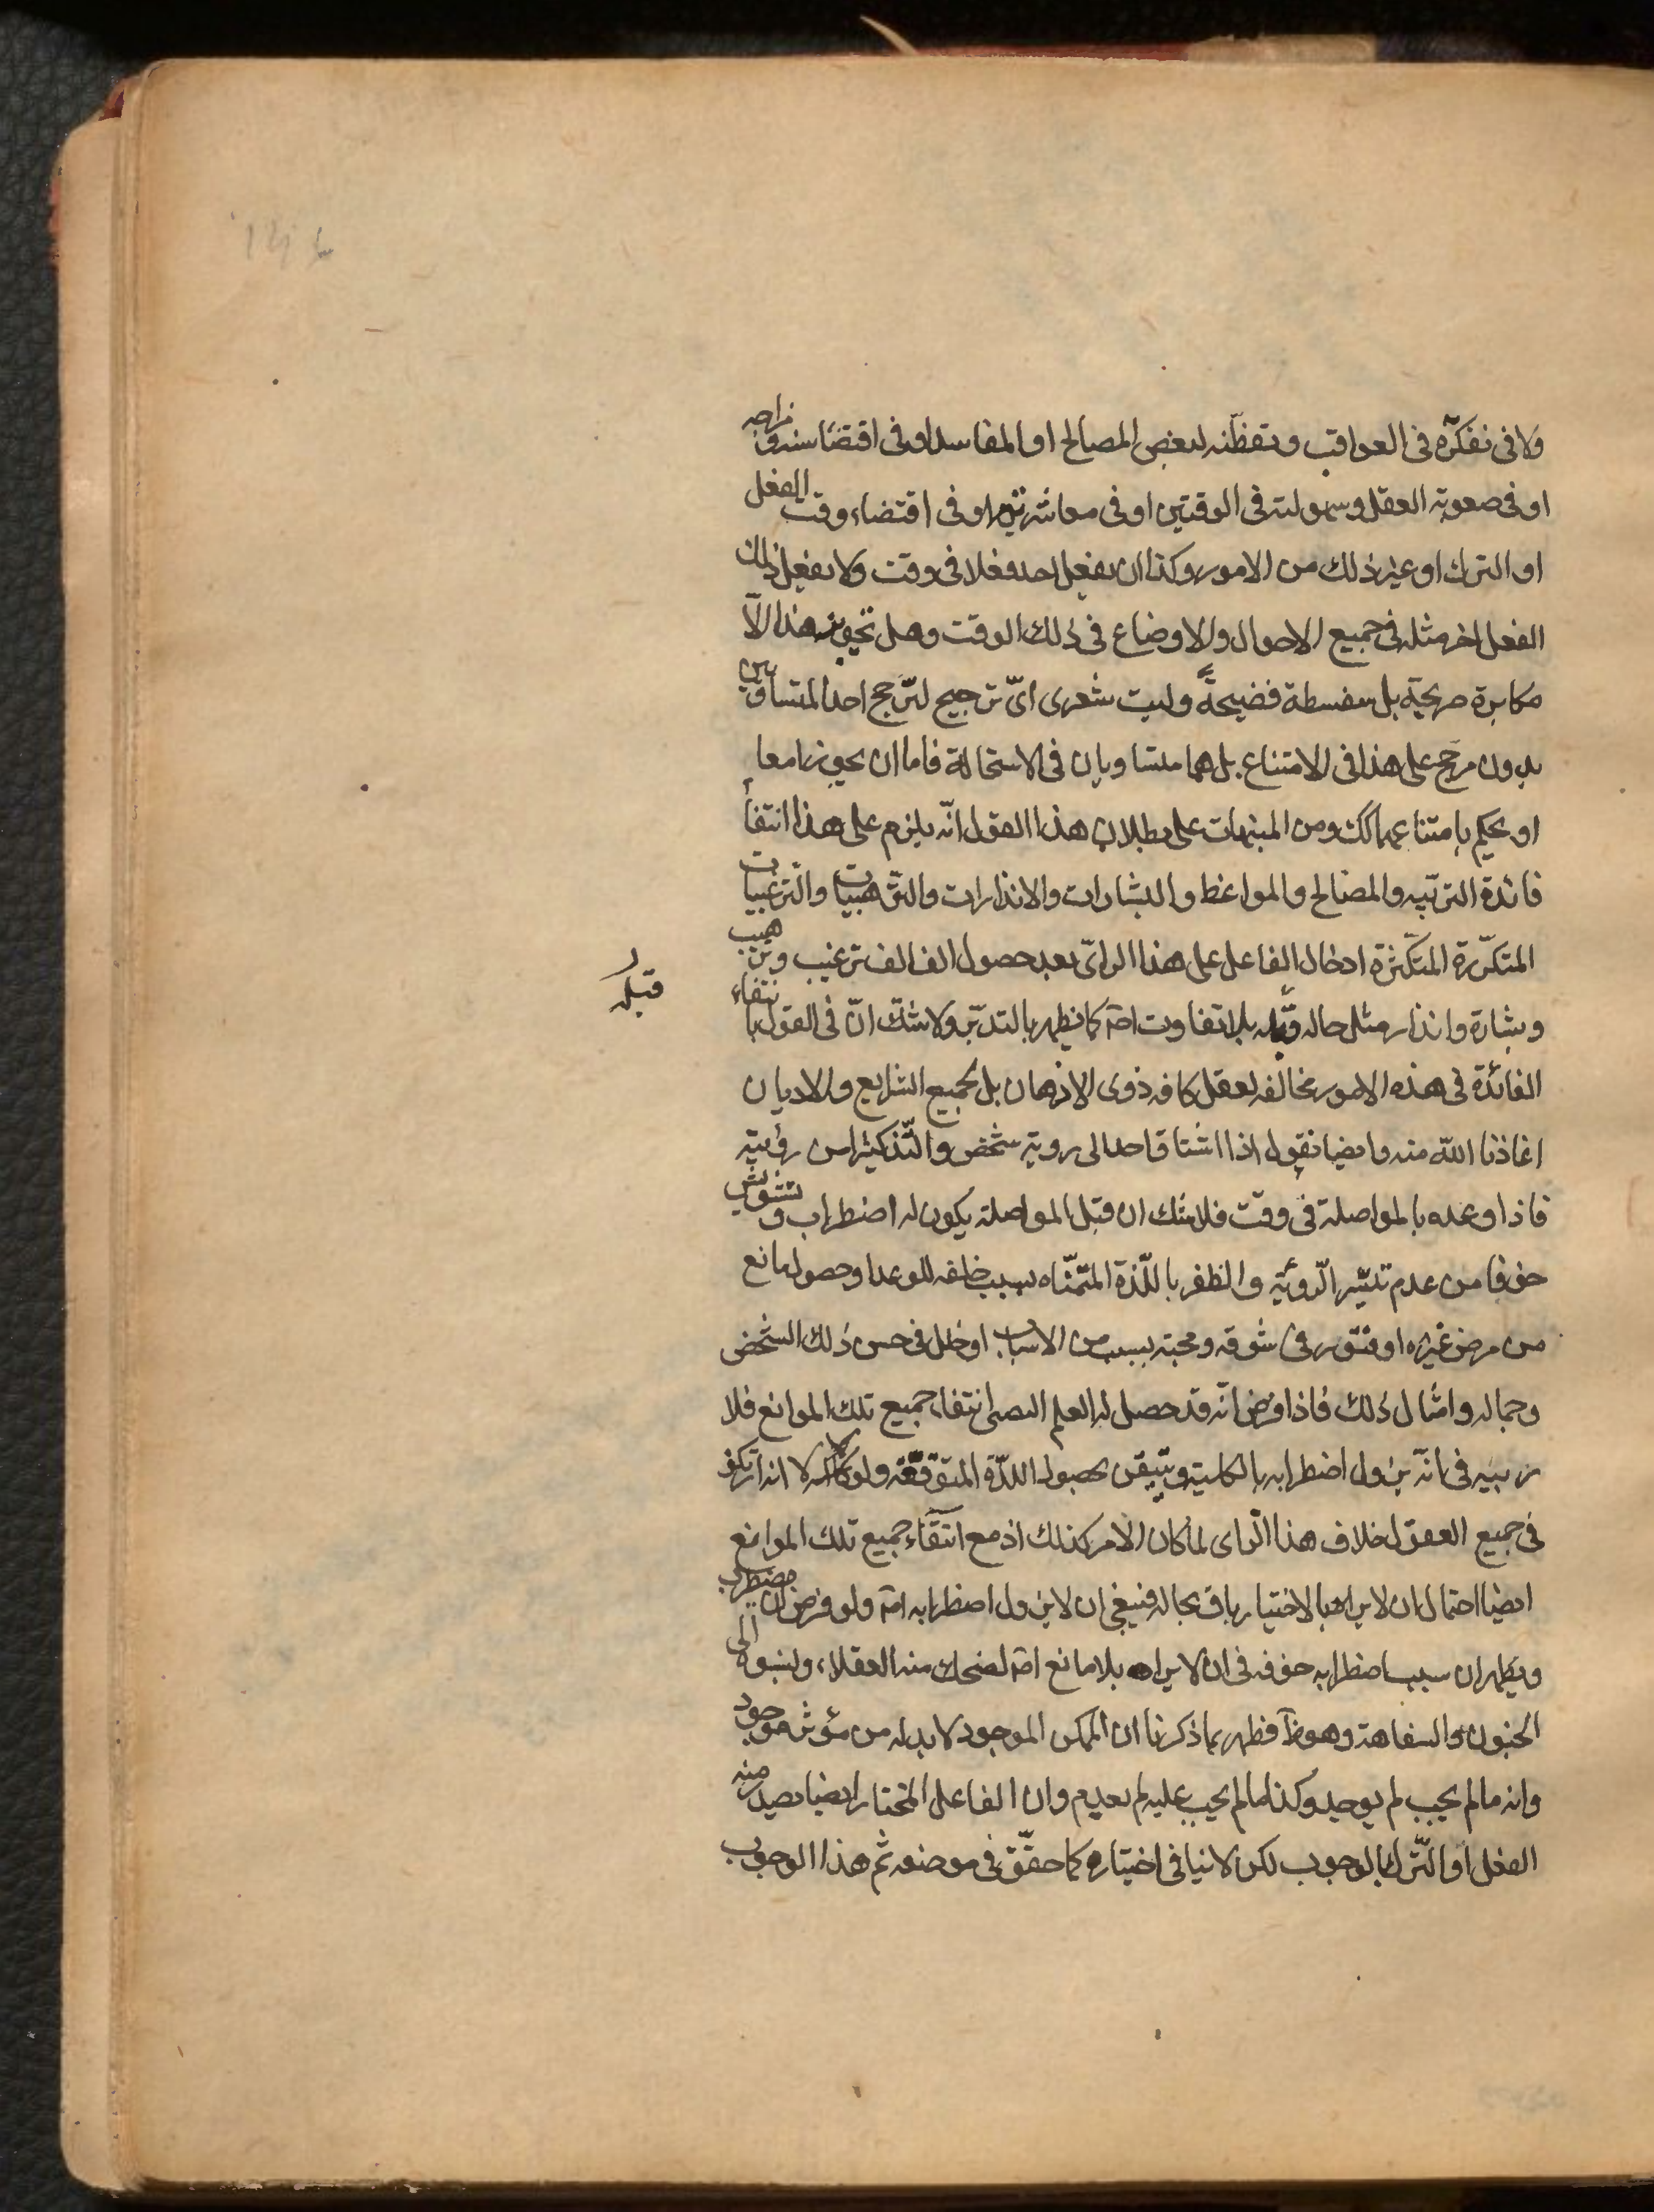 ولا فى تفكّره فى العواقب وتفطّنه لبعض المصالح او المفاسد او فى اقتضاء سنه ومزاجه
او فى صعوبة العقل وسهولته فى الوقتين او فى معاشرتهم او فى اقتضاء وقت الفعل
او الترك او غير ذلك من الامور وكذا ان يفعل احد فعلا فى وقت ولا يفعل ذلك
الفعل اخر مثله فى جميع الاحوال والاوضاع فى ذلك الوقت وهل تجويز هذا الّا
مكابرة صريحة بل سفسطة فضيحة وليت شعرى اىّ ترجيح لترجّح احد المتساويين
بدون مرجح على هذا فى الامتناع بل هما متساويان فى الاستحالة فاما ان يجوزا معا
او يحكم بامتناعهما كك ومن المنبهات على بطلان هذا القول انّه يلزم على هذا انتفاء
فائدة الترتيبه والمصالح والمواعظ والبشارات والانذارات والترهيبات والترغيبات
المتكرّرة المتكثرة اذ حال الفاعل على هذا الراى بعد حصول الف الف ترغيب وترهيب
وبشارة وانذار مثل حاله قبله بلا تفاوت اصّ كما يظهر بالتدبّر ولا شكّ انّ فى القول بانتفاء
قبله
الفائدة فى هذه الامور مخالفه لعقل كافه ذوى الاذهان بل لجميع الشرايع والاديان
اعاذنا اللّه منه وايضا نقول اذا اشتاق احد الى روية شخص والتّذ كثيرا من رؤيته
فاذا وعده بالمواصلة فى وقت فلا شك ان قبل المواصلة يكون له اضطراب وتشويش
خوفا من عدم تيسّر الرّوية والظفر باللّذة المتمنّاه بسبب خلفه للوعد او حصول مانع
من مرض غيره او فتور فى شوقه ومحبته بسبب من الاسباب او خلل فى حسن ذلك الشخص
وجماله وامثال ذلك فاذا فرض انّه قد حصل له العلم انتفاء جميع تلك الموانع فلا
ريبة فى انّه يزول اضطرابه بالكلية ويتيقن بحصول اللذّة المتوقّعة ولو كان لا انه ارتكز
فى جميع العقول خلاف هذا الرّاى لما كان الامر كذلك اذ مع انتفاء جميع تلك الموانع
ايضا احتمال ان لا يراه بالاختيار باق بحاله فينبغى ان لا يزول اضطرابه اصّ ولو فرض ان يضطرب
ويظهر ان سبب اضطرابه خوفه فى ان لا يراه بلا مانع اصّ لضحك منه العقلاء ولنسبوه الى
الجنون والسفاهة وهو ظّ فظهر بما ذكرنا ان الممكن الموجود لا بد له من مؤثر موجود
وانه ما لم يجب لم يوجد وكذا ما لم يجب عليه لم يعدم وان الفاعل المختار ايضا يصدر منه
الفعل او الترك بالوجوب لكن لا ينافى اختياره كما حقّق فى موضعه ثم هذا الوجوب